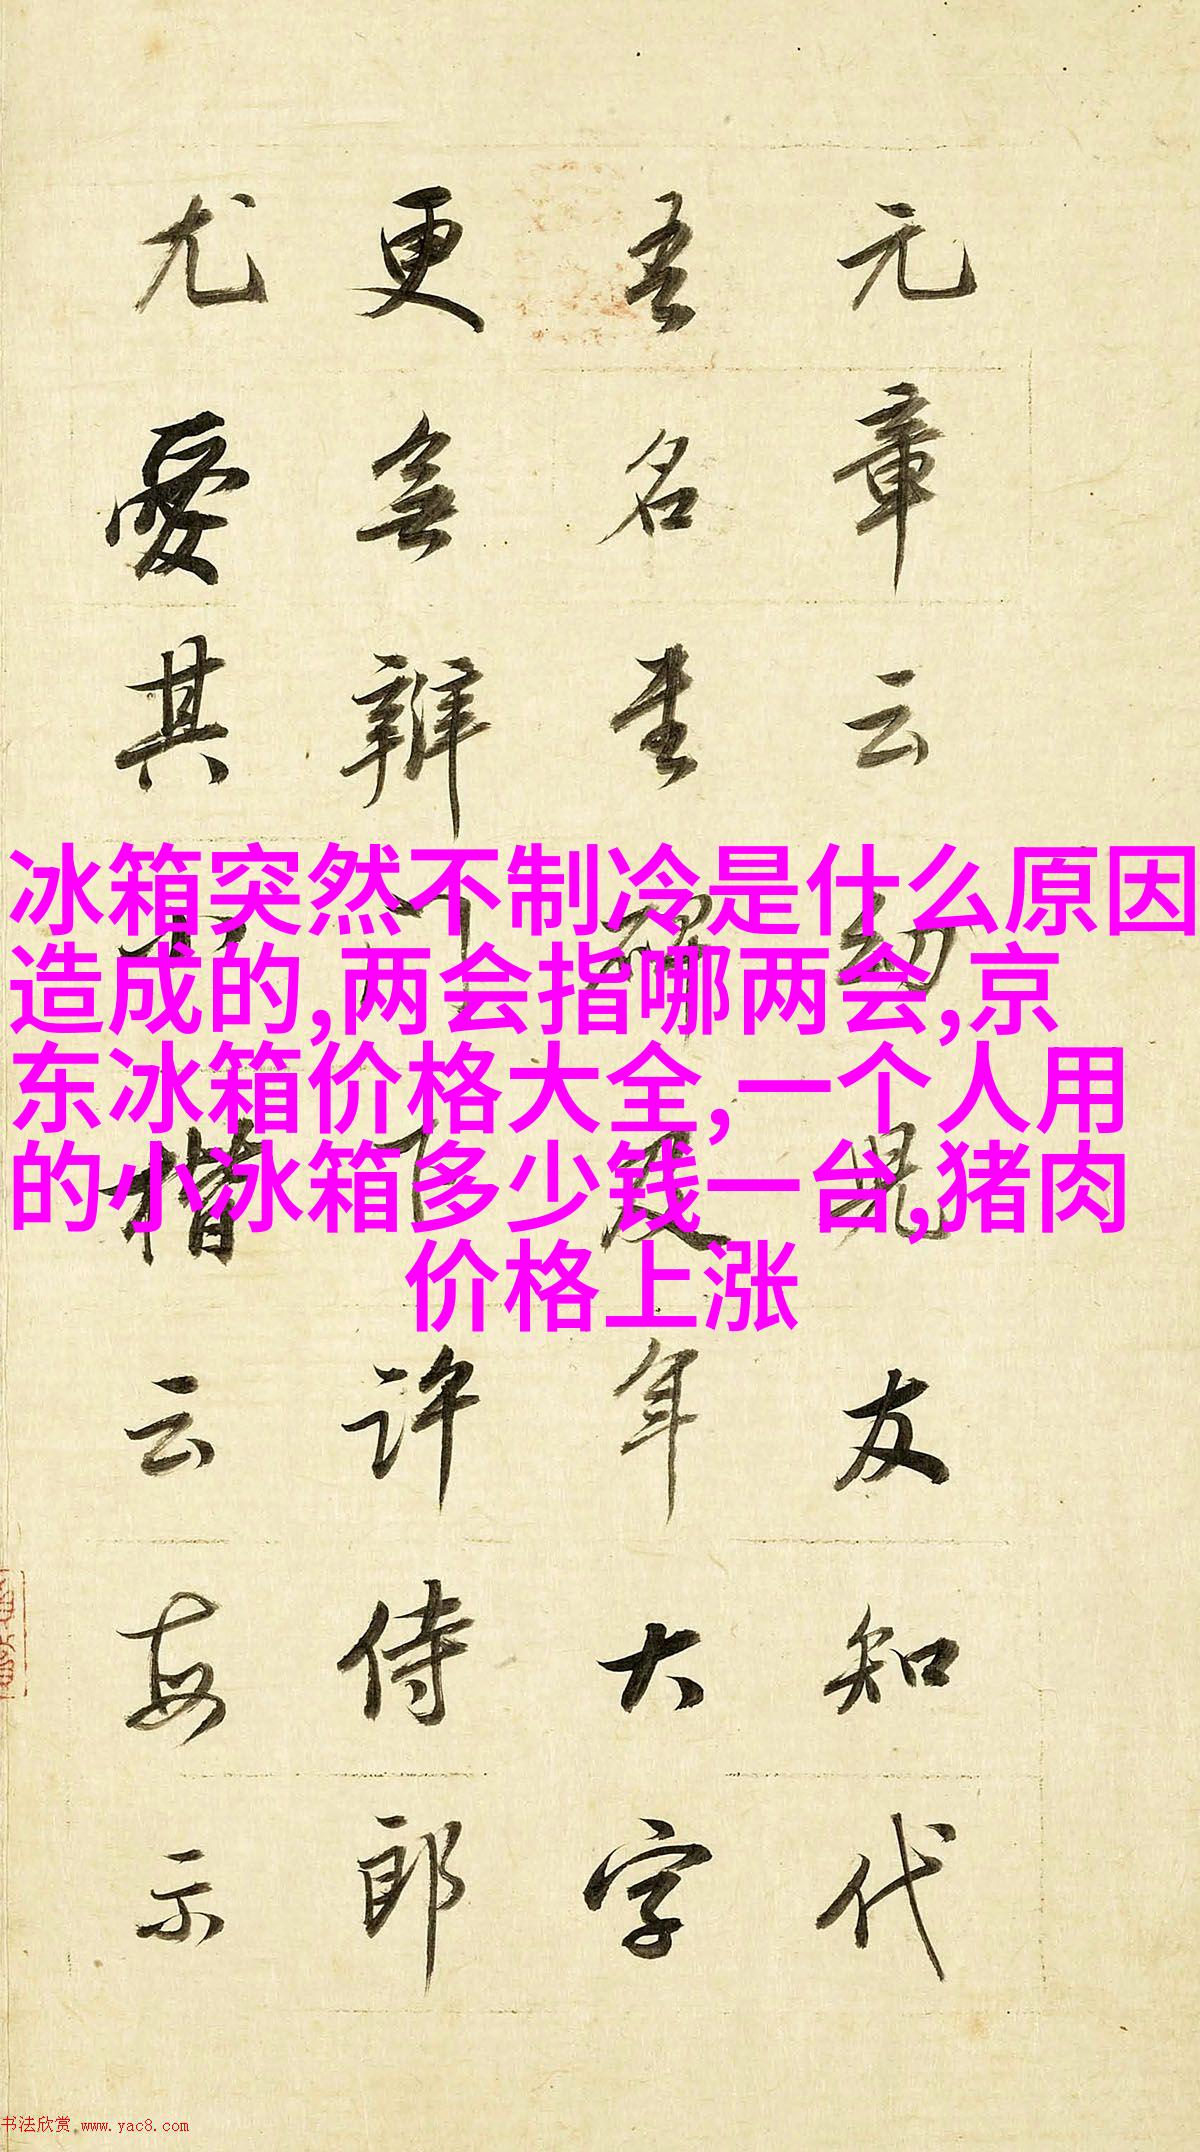 元章云幼兒友知代
吾名書碑及年大字
更無辨門下許侍郎
尤愛其小楷云每示
冰箱突然不制冷是什么原因
造成的,两会指哪两会,京
东冰箱价格大全,一个人用
的小冰箱多少钱一台,猪肉
价格上涨
书法欣赏.www.yac8.com